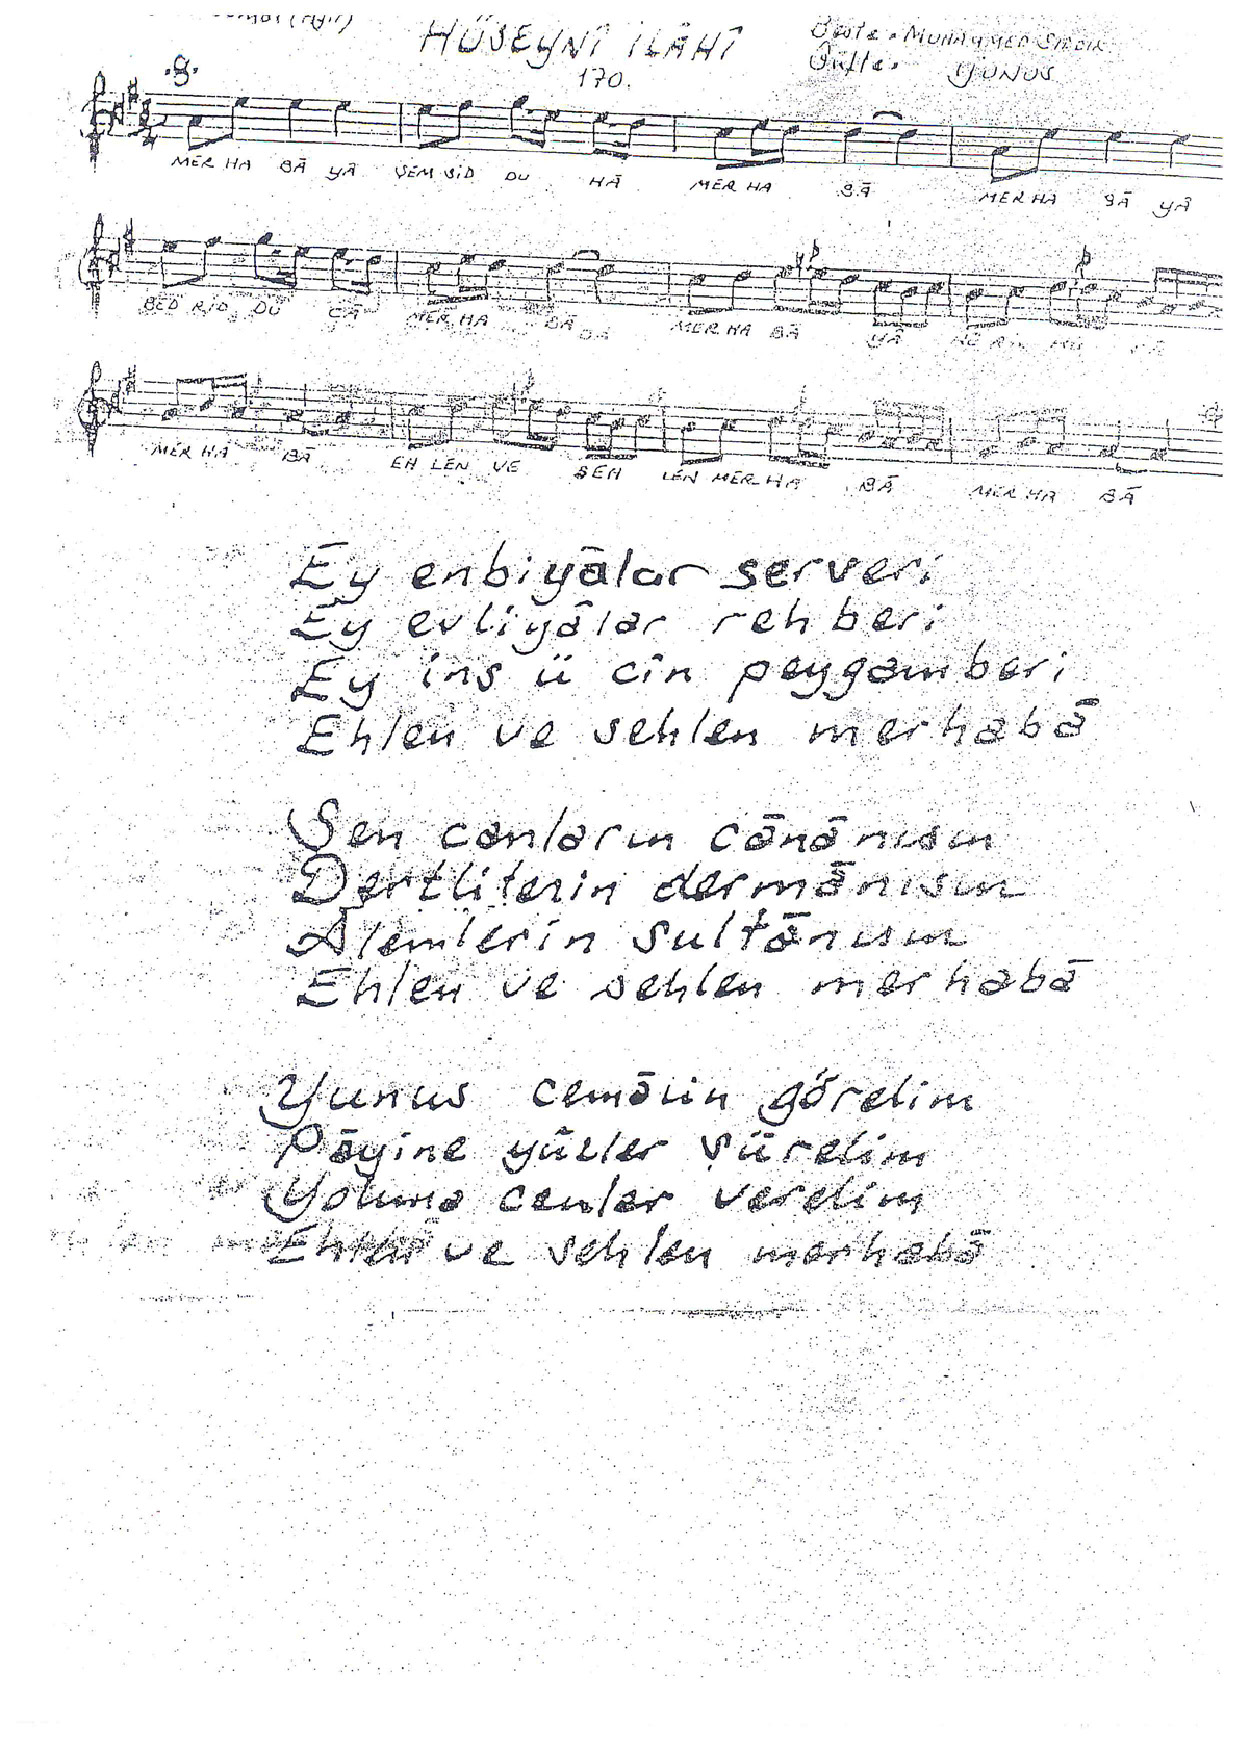 HÜSEYNÎ İLÂHÎ
170.
Beste: MUHAMMED
Güfte: YUNUS
MER HA BÂ YÂ ŞEM SİD DU HÂ MER HA BÂ MER HA BÂ YÂ
BED RİD DÜ CÂ MER HA BÂ MER HA BÂ YÂ
MER HA BÂ EH LEN VE SEH LEN MER HA BÂ MER HA BÂ
Ey enbiyâlar serveri
Ey evliyâlar rehberi
Ey ins ü cin peygamberi
Ehlen ve sehlen merhabâ
Sen canların cânânısın
Dertlilerin dermânısın
Âlemlerin sultânısın
Ehlen ve sehlen merhabâ
Yunus cemâlin görelim
Pâyine yüzler sürelim
Yoluna canlar verelim
Ehlen ve sehlen merhabâ